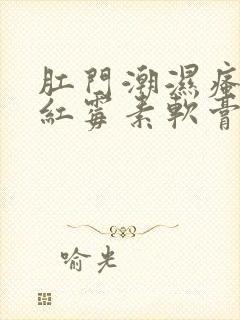 肛門潮濕瘙
紅霉素軟膏
喻光